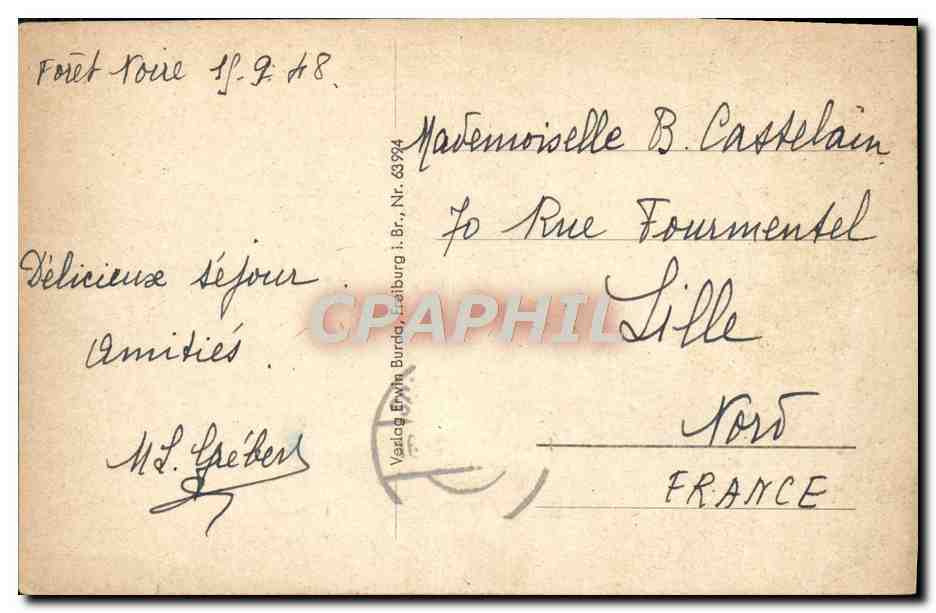 Forêt Noire 15-9-48.
Délicieux séjour.
Amitiés.
M L. Grébert
Verlag Erwin Burda, Freiburg i. Br., Nr. 63994
Mademoiselle B. Castelain
70 Rue Fourmentel
Lille
Nord
FRANCE
CPAPHIL